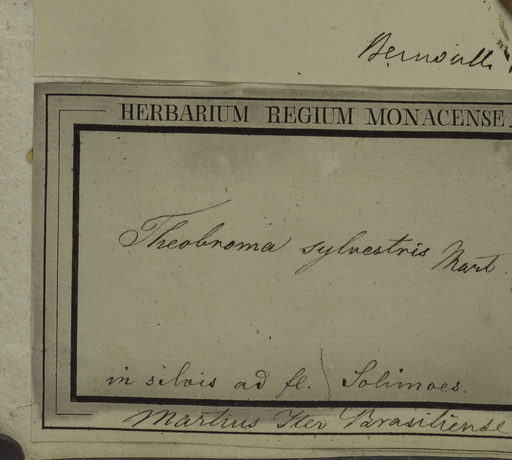 Bernoulli
HERBARIUM REGIUM MONACENSE.
Theobroma sylvestris Mart
in silvis ad fl. Solimoes.
Martius Iter Brasiliense